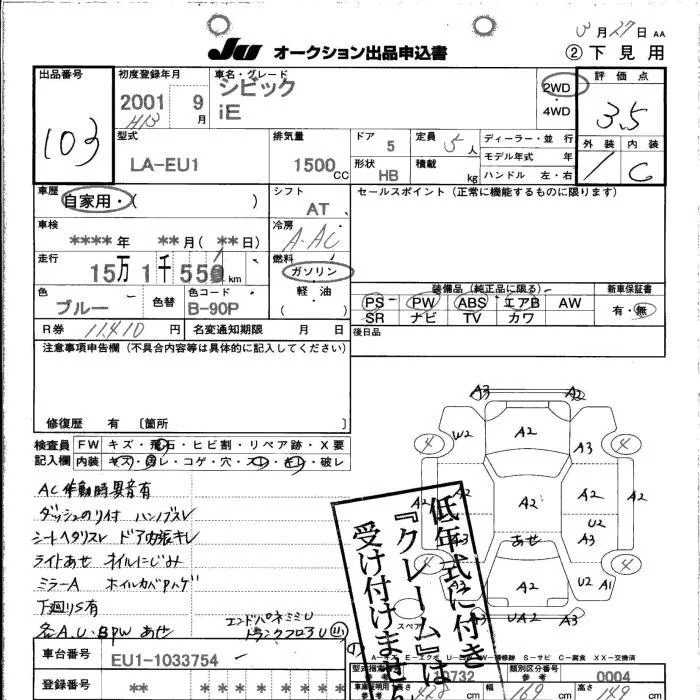 3月27日 AA
JU オークション出品申込書
② 下見用
出品番号 初度登録年月 車名・グレード 2WD 4WD 評価点
103 2001 9月 H13 シビック iE 3.5
型式 排気量 ドア 5 定員 5人 ディーラー・並行 外装 内装
LA-EU1 1500CC 形状 HB 積載 kg モデル年式 年 ハンドル 左・右 C
車歴 自家用・( ) シフト AT セールスポイント (正常に機能するものに限ります)
車検 ****年 **月(**日) 冷房 A-AC
走行 15万1千55 km 燃料 ガソリン
色 ブルー 色替 色コード B-90P 軽・油 ( )
装備品 (純正品に限る) 新車保証書
PS PW ABS エアB AW 有・無
SR ナビ TV カワ
R券 11410円 名変通知期限 月 日 後日品
注意事項申告欄 (不具合内容等は具体的に記入してください)
修復歴 有 〔箇所 〕
検査員 FW キズ・飛石・ヒビ割・リペア跡・X要
記入欄 内装 キズ・汚レ・コゲ・穴・スレ・キレ・破レ
AC作動時異音有
ダッシュのり付 ハンドルスレ
シートヘタリスレ ドア内張キレ
ライトあせ オイルにじみ
ミラーA ホイルカバーハゲ
下廻りS有
各A.U.BPW あせ
エンドパネミミU
トランクフロアU
A3 A2
4 W2 A2 A3 4
A2 A2 A2 A2 A2
U2
A3 あせ A3
4 A2 U2 A1 4
U3 UA2 A3
スペア
低年式に付き
『クレーム』は
受け付けません
A-キズ E-エクボ S-サビ C-腐食 XX-交換済
車台番号 EU1-1033754
型式指定 0732 類別区分番号 0004
登録番号 ** *